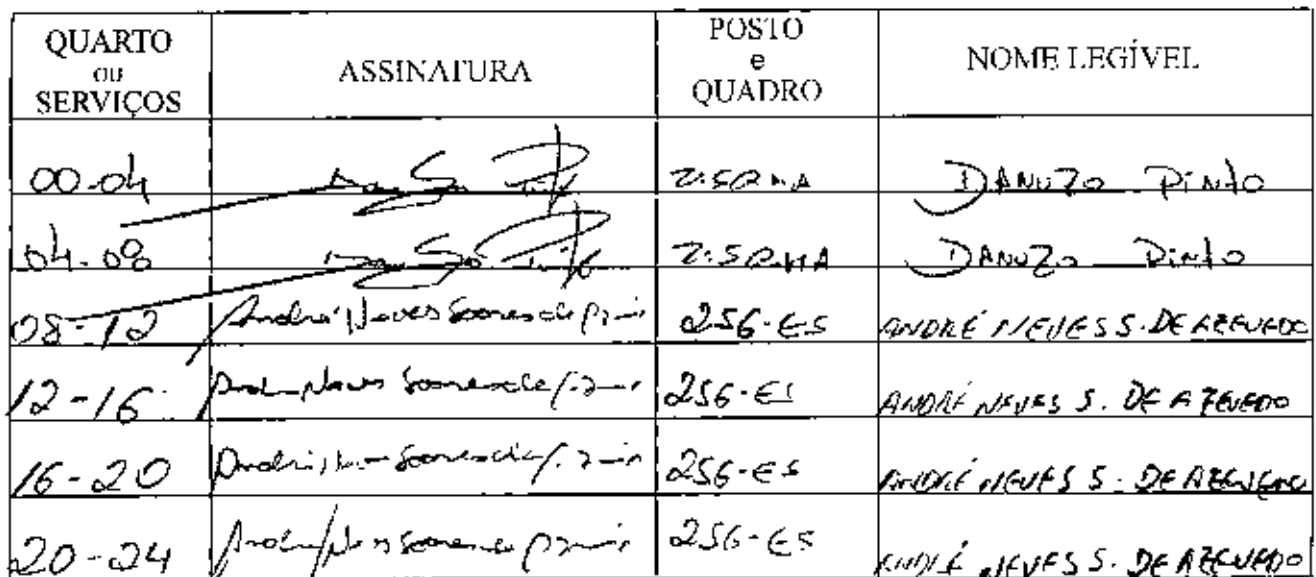 QUARTO ou SERVIÇOS ASSINATURA POSTO e QUADRO NOME LEGÍVEL
00-04 2:SG MA DANUZO PINTO
04-08 2:SG MA DANUZO PINTO
08-12 André Neves Soares de 2SG-ES ANDRÉ NEVES S. DE AZEVEDO
12-16 Neves Soares de 2SG-ES ANDRÉ NEVES S. DE AZEVEDO
16-20 Soares de 2SG-ES ANDRÉ NEVES S. DE AZEVEDO
20-24 Soares de 2SG-ES ANDRÉ NEVES S. DE AZEVEDO